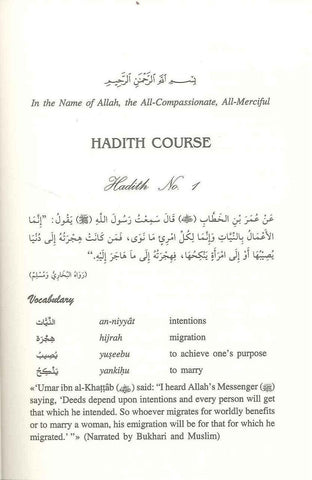 بسم الله الرحمن الرحيم
In the Name of Allah, the All-Compassionate, All-Merciful
HADITH COURSE
Hadith No. 1
عَنْ عُمَرَ بْنِ الْخَطَّابِ (ﷺ) قَالَ سَمِعْتُ رَسُولَ اللَّهِ (ﷺ) يَقُولُ: "إِنَّمَا
الأَعْمَالُ بِالنِّيَّاتِ وَإِنَّمَا لِكُلِّ امْرِئٍ مَا نَوَى، فَمَنْ كَانَتْ هِجْرَتُهُ إِلَى دُنْيَا
يُصِيبُهَا أَوْ إِلَى امْرَأَةٍ يَنْكِحُهَا، فَهِجْرَتُهُ إِلَى مَا هَاجَرَ إِلَيْهِ."
(رَوَاهُ الْبُخَارِيُّ وَمُسْلِمٌ)
Vocabulary
النِّيَّات an-niyyât intentions
هِجْرَة hijrah migration
يُصِيبُ yuṣeebu to achieve one's purpose
يَنْكِحُ yankiḥu to marry
«'Umar ibn al-Khaṭṭâb () said: "I heard Allah's Messenger (ﷺ)
saying, 'Deeds depend upon intentions and every person will get
that which he intended. So whoever migrates for worldly benefits
or to marry a woman, his emigration will be for that for which he
migrated.' "» (Narrated by Bukhari and Muslim)